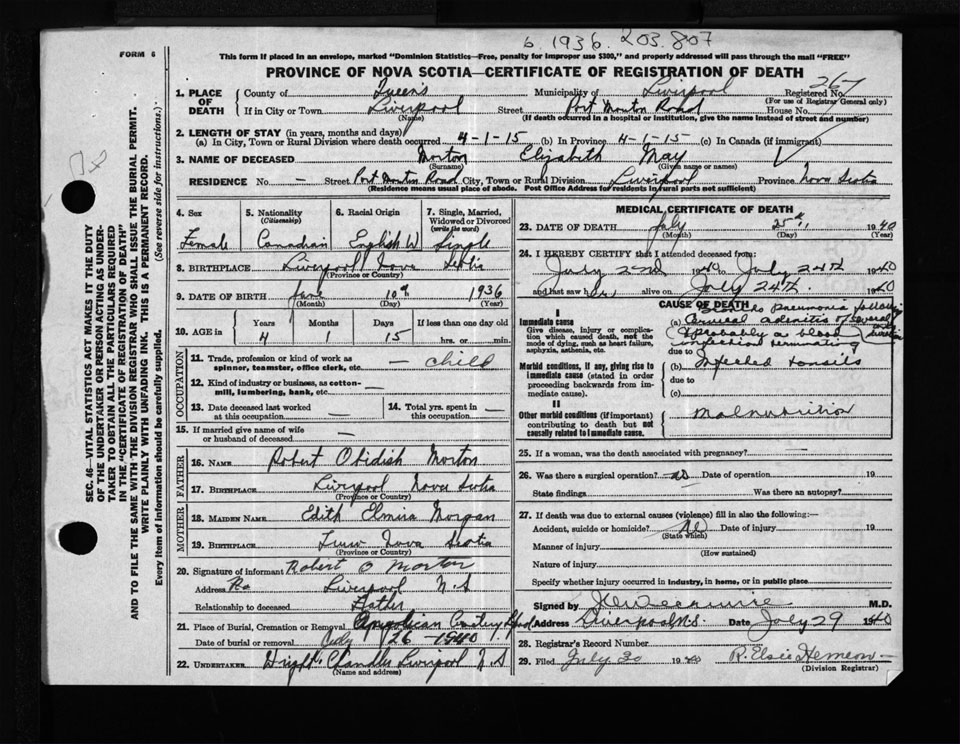 6. 1936. 203.807
FORM 6
This form if placed in an envelope, marked "Dominion Statistics—Free, penalty for improper use $300," and properly addressed will pass through the mail "FREE"
PROVINCE OF NOVA SCOTIA—CERTIFICATE OF REGISTRATION OF DEATH
267
1. PLACE OF DEATH County of Queen's Municipality of Liverpool Registered No.
(For use of Registrar General only)
If in City or Town Liverpool Street Port Mouton Road House No.
(Name) (If death occurred in a hospital or institution, give the name instead of street and number)
2. LENGTH OF STAY (in years, months and days)
(a) In City, Town or Rural Division where death occurred 4-1-15 (b) In Province 4-1-15 (c) In Canada (if immigrant)
3. NAME OF DECEASED Morton Elizabeth May
(Surname) (Given name or names)
RESIDENCE No. — Street Port Mouton Road City, Town or Rural Division Liverpool Province Nova Scotia
(Residence means usual place of abode. Post Office Address for residents in rural parts not sufficient)
SEC. 46—VITAL STATISTICS ACT MAKES IT THE DUTY
OF THE UNDERTAKER OR PERSON ACTING AS UNDER-
TAKER TO OBTAIN ALL THE PARTICULARS REQUIRED
IN THE "CERTIFICATE OF REGISTRATION OF DEATH"
AND TO FILE THE SAME WITH THE DIVISION REGISTRAR WHO SHALL ISSUE THE BURIAL PERMIT.
WRITE PLAINLY WITH UNFADING INK. THIS IS A PERMANENT RECORD.
Every item of information should be carefully supplied. (See reverse side for instructions.)
4. Sex 5. Nationality (Citizenship) 6. Racial Origin 7. Single, Married, Widowed or Divorced (write the word)
Female Canadian English W Single
8. BIRTHPLACE Liverpool Nova Scotia
(Province or Country)
9. DATE OF BIRTH June 10th 1936
(Month) (Day) (Year)
10. AGE in Years Months Days If less than one day old
4 1 15 hrs. or min.
OCCUPATION
11. Trade, profession or kind of work as spinner, teamster, office clerk, etc. — child
12. Kind of industry or business, as cotton-mill, lumbering, bank, etc. —
13. Date deceased last worked at this occupation — 14. Total yrs. spent in this occupation —
15. If married give name of wife or husband of deceased —
FATHER
16. NAME Robert Obidish Morton
17. BIRTHPLACE Liverpool Nova Scotia
(Province or Country)
MOTHER
18. MAIDEN NAME Edith Elmira Morgan
19. BIRTHPLACE Nova Scotia
(Province or Country)
20. Signature of informant Robert O Morton
Address Liverpool N S
Relationship to deceased Father
21. Place of Burial, Cremation or Removal Cemetery
Date of burial or removal July 26-1940
22. UNDERTAKER Chandler Liverpool N S
(Name and address)
MEDICAL CERTIFICATE OF DEATH
23. DATE OF DEATH July 25th 1940
(Month) (Day) (Year)
24. I HEREBY CERTIFY that I attended deceased from:
July 22nd 1940 to July 24th 1940
and last saw her alive on July 24th 1940
CAUSE OF DEATH
I
Immediate cause
Give disease, injury or complication which caused death, not the mode of dying, such as heart failure, asphyxia, asthenia, etc.
(a) pneumonia following
Cervical adenitis of several duration
(probably as blood
infection terminating
due to
Morbid conditions, if any, giving rise to immediate cause (stated in order proceeding backwards from immediate cause).
(b) Infected tonsils
due to
(c)
II
Other morbid conditions (if important) contributing to death but not causally related to immediate cause.
Malnutrition
25. If a woman, was the death associated with pregnancy? —
26. Was there a surgical operation? no Date of operation 19
State findings Was there an autopsy?
27. If death was due to external causes (violence) fill in also the following:—
Accident, suicide or homicide? No Date of injury 19
(State which)
Manner of injury
(How sustained)
Nature of injury
Specify whether injury occurred in industry, in home, or in public place
Signed by M.D.
Address Liverpool N.S. Date July 29 1940
28. Registrar's Record Number
29. Filed July 30 1940 R. Elsie Hemeon
(Division Registrar)